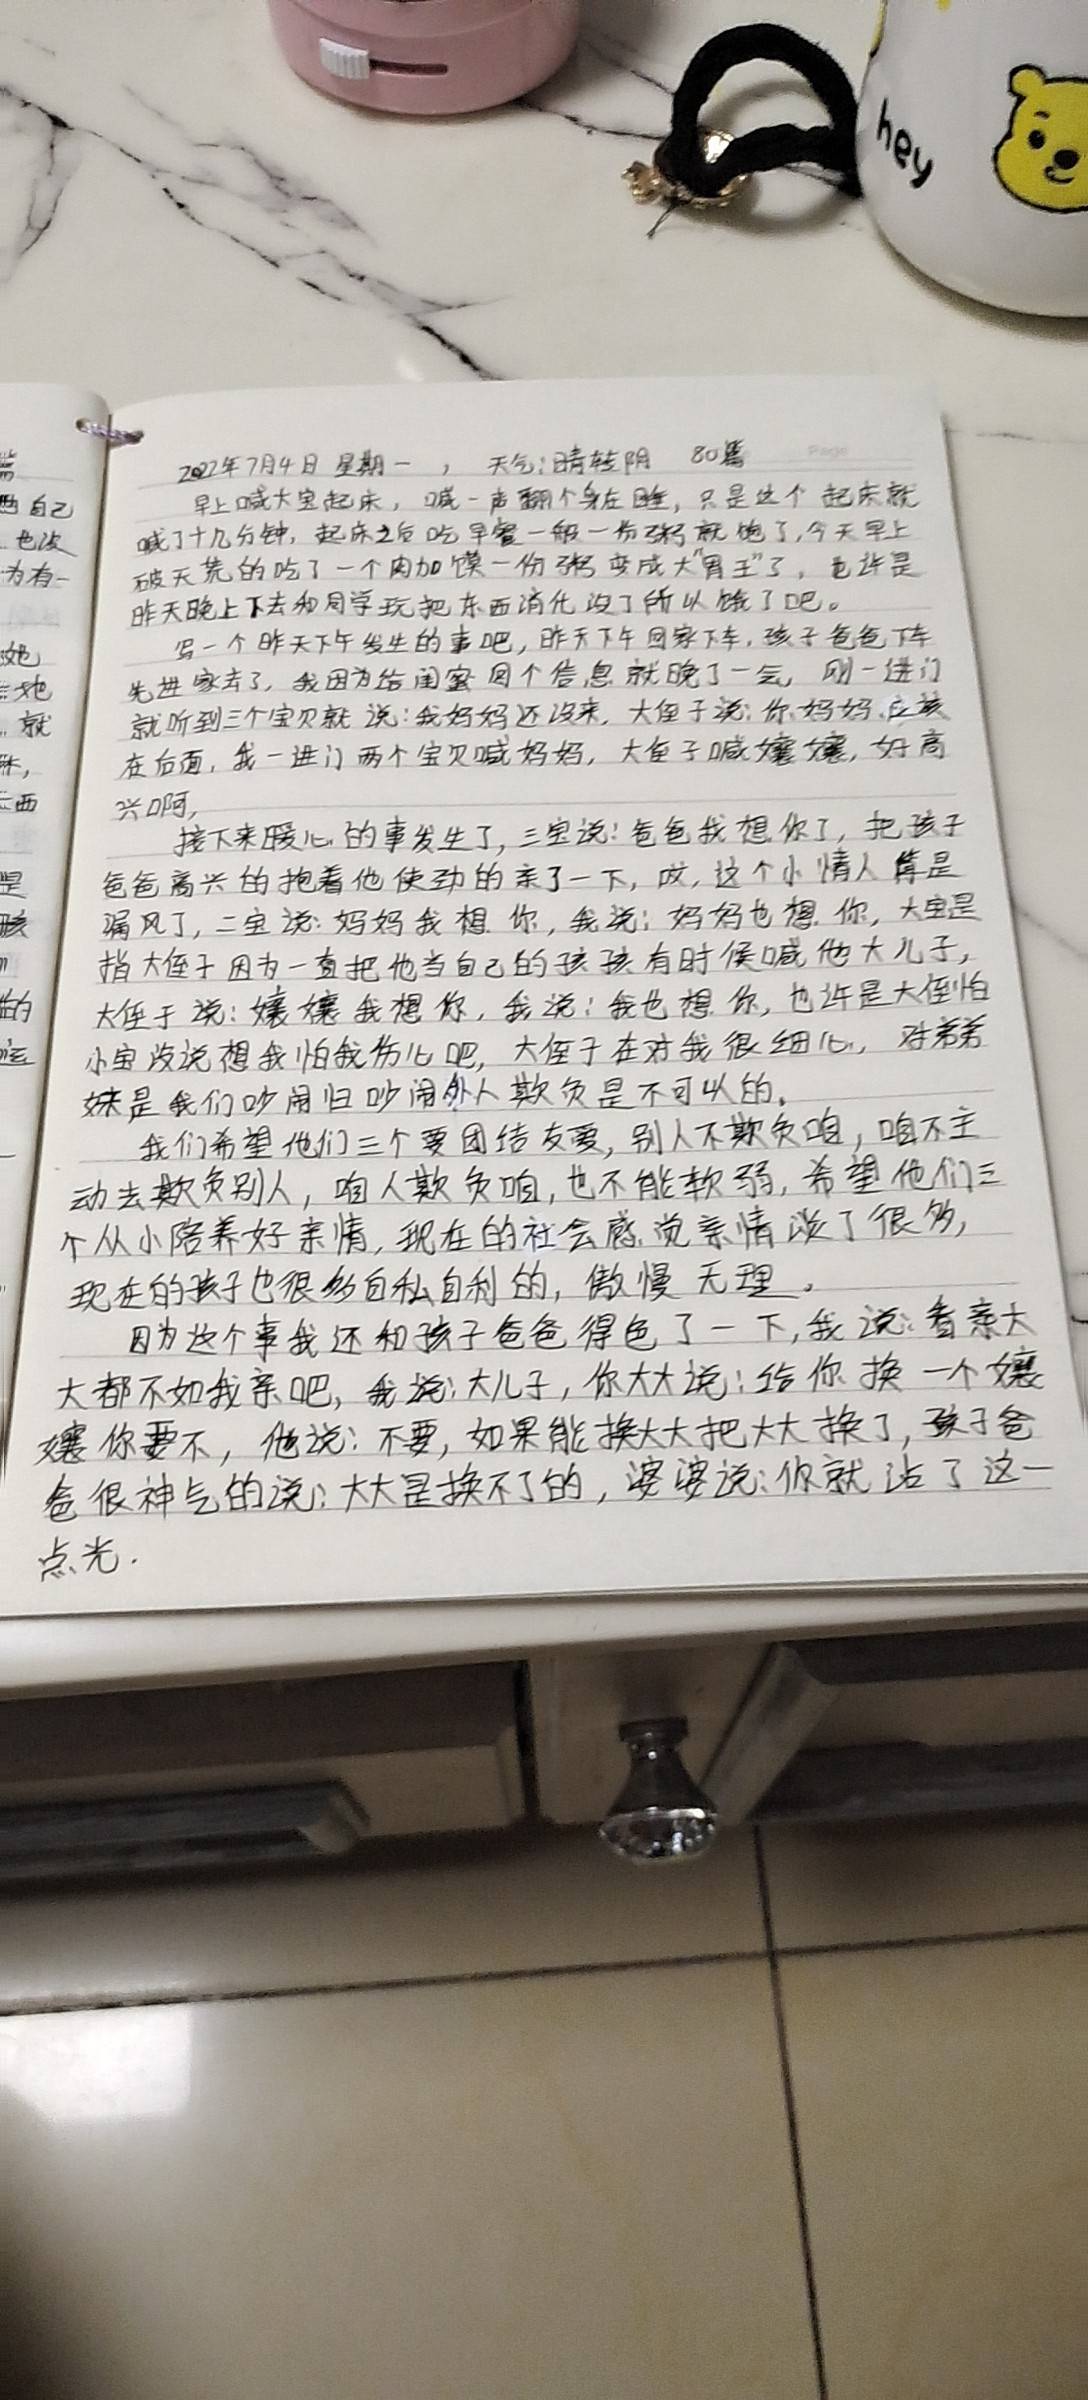 hey
Page
2022年7月4日 星期一 , 天气:晴转阴 80篇
早上喊大宝起床，喊一声翻个身在睡，只是这个起床就
喊了十几分钟，起床之后吃早餐一般一份粥就饱了,今天早上
破天荒的吃了一个肉加馍一份粥变成大“胃王”了，也许是
昨天晚上下去和同学玩把东西消化没了所以饿了吧。
写一个昨天下午发生的事吧，昨天下午回家下车，孩子爸爸下车
先进家去了，我因为给闺蜜回个信息就晚了一会，刚一进门
就听到三个宝贝就说:我妈妈还没来，大侄子说:你妈妈应该
在后面，我一进门两个宝贝喊妈妈，大侄子喊嬢嬢，好高
兴啊,
接下来暖心的事发生了,三宝说:爸爸我想你了，把孩子
爸爸高兴的抱着他使劲的亲了一下，哎，这个小情人
漏风了,二宝说:妈妈我想你，我说:妈妈也想你，大宝是
指大侄子因为一直把他当自己的孩孩有时候喊他大儿子，
大侄子说:嬢嬢我想你，我说:我也想你，也许是大侄怕
小宝没说想我怕我伤心吧，大侄子在对我很细心，对弟弟
妹是我们吵闹归吵闹外人欺负是不可以的。
我们希望他们三个要团结友爱，别人不欺负咱，咱不主
动去欺负别人，咱人欺负咱,也不能软弱，希望他们三
个从小陪养好亲情，现在的社会感觉亲情淡了很多，
现在的孩子也很多自私自利的，傲慢无理。
因为这个事我还和孩子爸爸得色了一下,我说:看亲大
大都不如我亲吧，我说:大儿子，你大大说:给你换一个嬢
嬢你要不，他说:不要，如果能换大大把大大换了，孩子爸
爸很神气的说:大大是换不了的，婆婆说:你就沾了这一
点光.
自己
也没
为有一
就